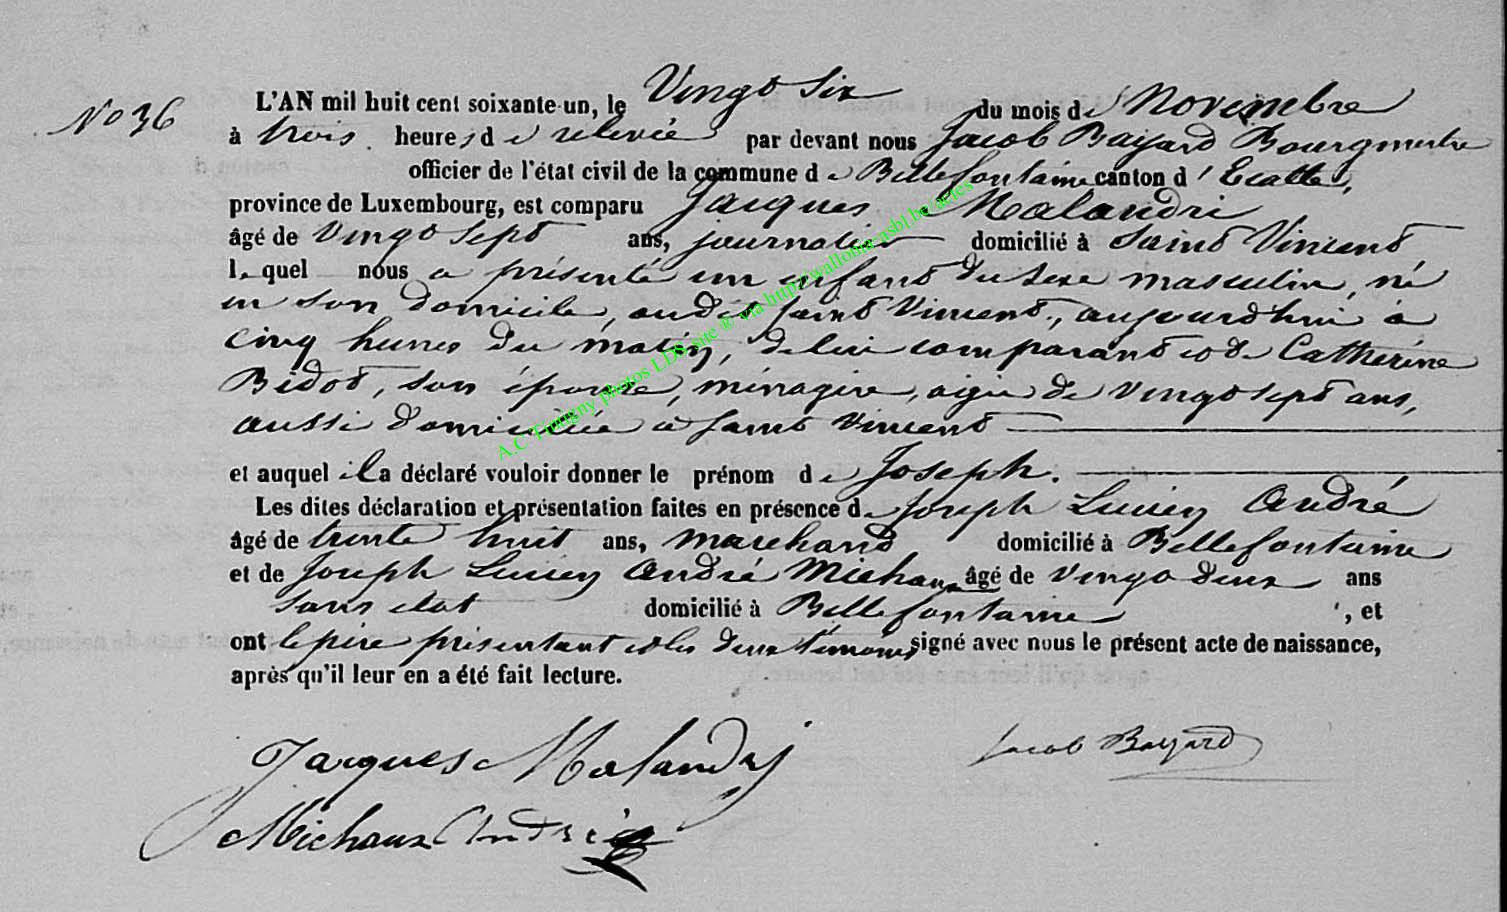 No 36
L'AN mil huit cent soixante-un, le Vingt Six du mois de Novembre
à trois heures de relevée par devant nous Jacob Bayard Bourgmestre
officier de l'état civil de la commune de Bellefontaine canton d'Etalle,
province de Luxembourg, est comparu Jacques Malandri
âgé de Vingt Sept ans, journalier domicilié à Saint Vincent
lequel nous a présenté un enfant du sexe masculin, né
en son domicile, audit Saint Vincent, aujourd'hui à
cinq heures du matin, de lui comparant et de Catherine
Bidot, son épouse, ménagère, agée de vingt sept ans,
aussi domiciliée à Saint Vincent
et auquel il a déclaré vouloir donner le prénom de Joseph.
Les dites déclaration et présentation faites en présence de Joseph Lucien André
âgé de trente huit ans, marchand domicilié à Bellefontaine
et de Joseph Lucien André Michaux âgé de Vingt deux ans
sans etat domicilié à Bellefontaine, et
ont le père présentant et les deux témoins signé avec nous le présent acte de naissance,
après qu'il leur en a été fait lecture.
Jacques Malandri
Jacob Bayard
Michaux André
A.C Tintigny photos LDS, site ® via http://wallonia-asbl.be/actes